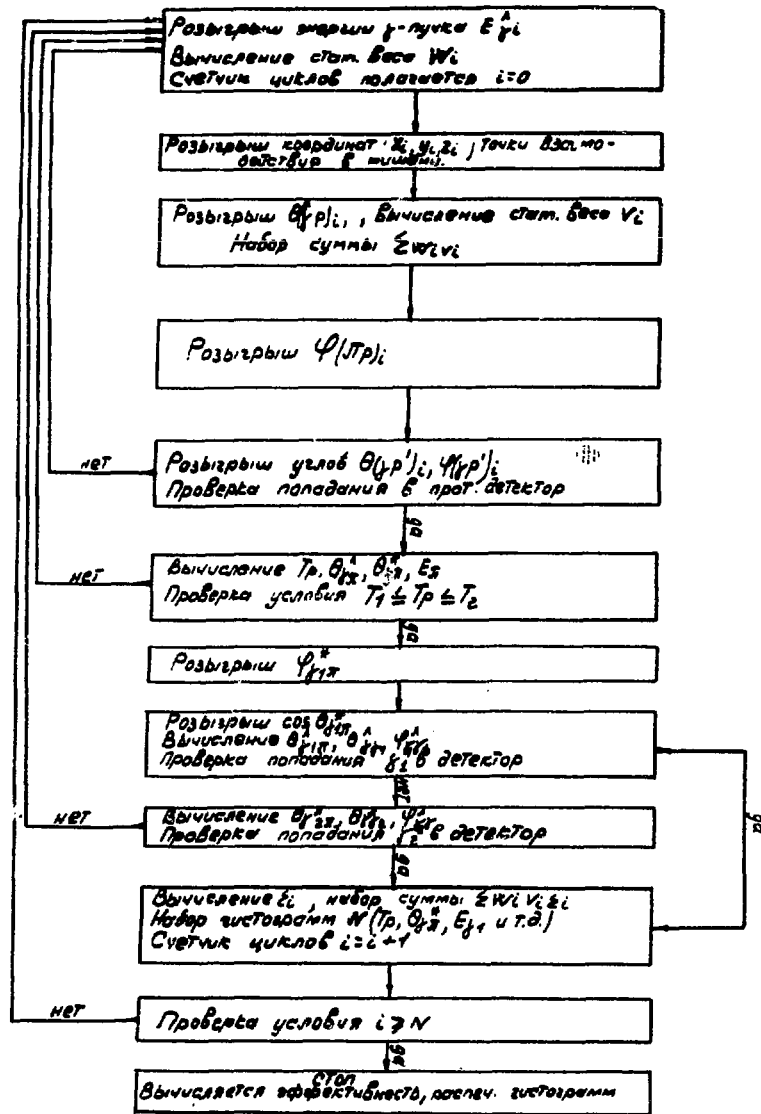 Розыгрыш энергии γ-пучка E^Λ_γi
Вычисление стат. веса Wi
Счетчик циклов полагается i=0
Розыгрыш координат xi, yi, zi, точки взаимо-
действия в мишени.
Розыгрыш θ(γp)i, Вычисление стат. веса Vi
Набор суммы Σwivi
Розыгрыш φ(πp)i
нет
Розыгрыш углов θ(γp')i, φ(γp')i
Проверка попадания в прот. детектор
да
нет
Вычисление Tp, θ^Λ_γπ, θ^*_γπ, Eπ
Проверка условия T1 ≤ Tp ≤ T2
да
Розыгрыш φ^*_γ1π
Розыгрыш cos θ^*_γ1π
Вычисление θ^Λ_γ1π, θ^Λ_γγ1,
Проверка попадания в детектор
да
нет
нет
Вычисление
Проверка попадания в детектор
да
Вычисление εi, набор суммы Σwi vi εi
Набор гистограмм N (Tp, θ^*_γπ, Eγ1 и т.д.)
Счетчик циклов i=i+1
нет
Проверка условия i ⩾ N
да
стоп
Вычисляется эффективность, распеч. гистограмм